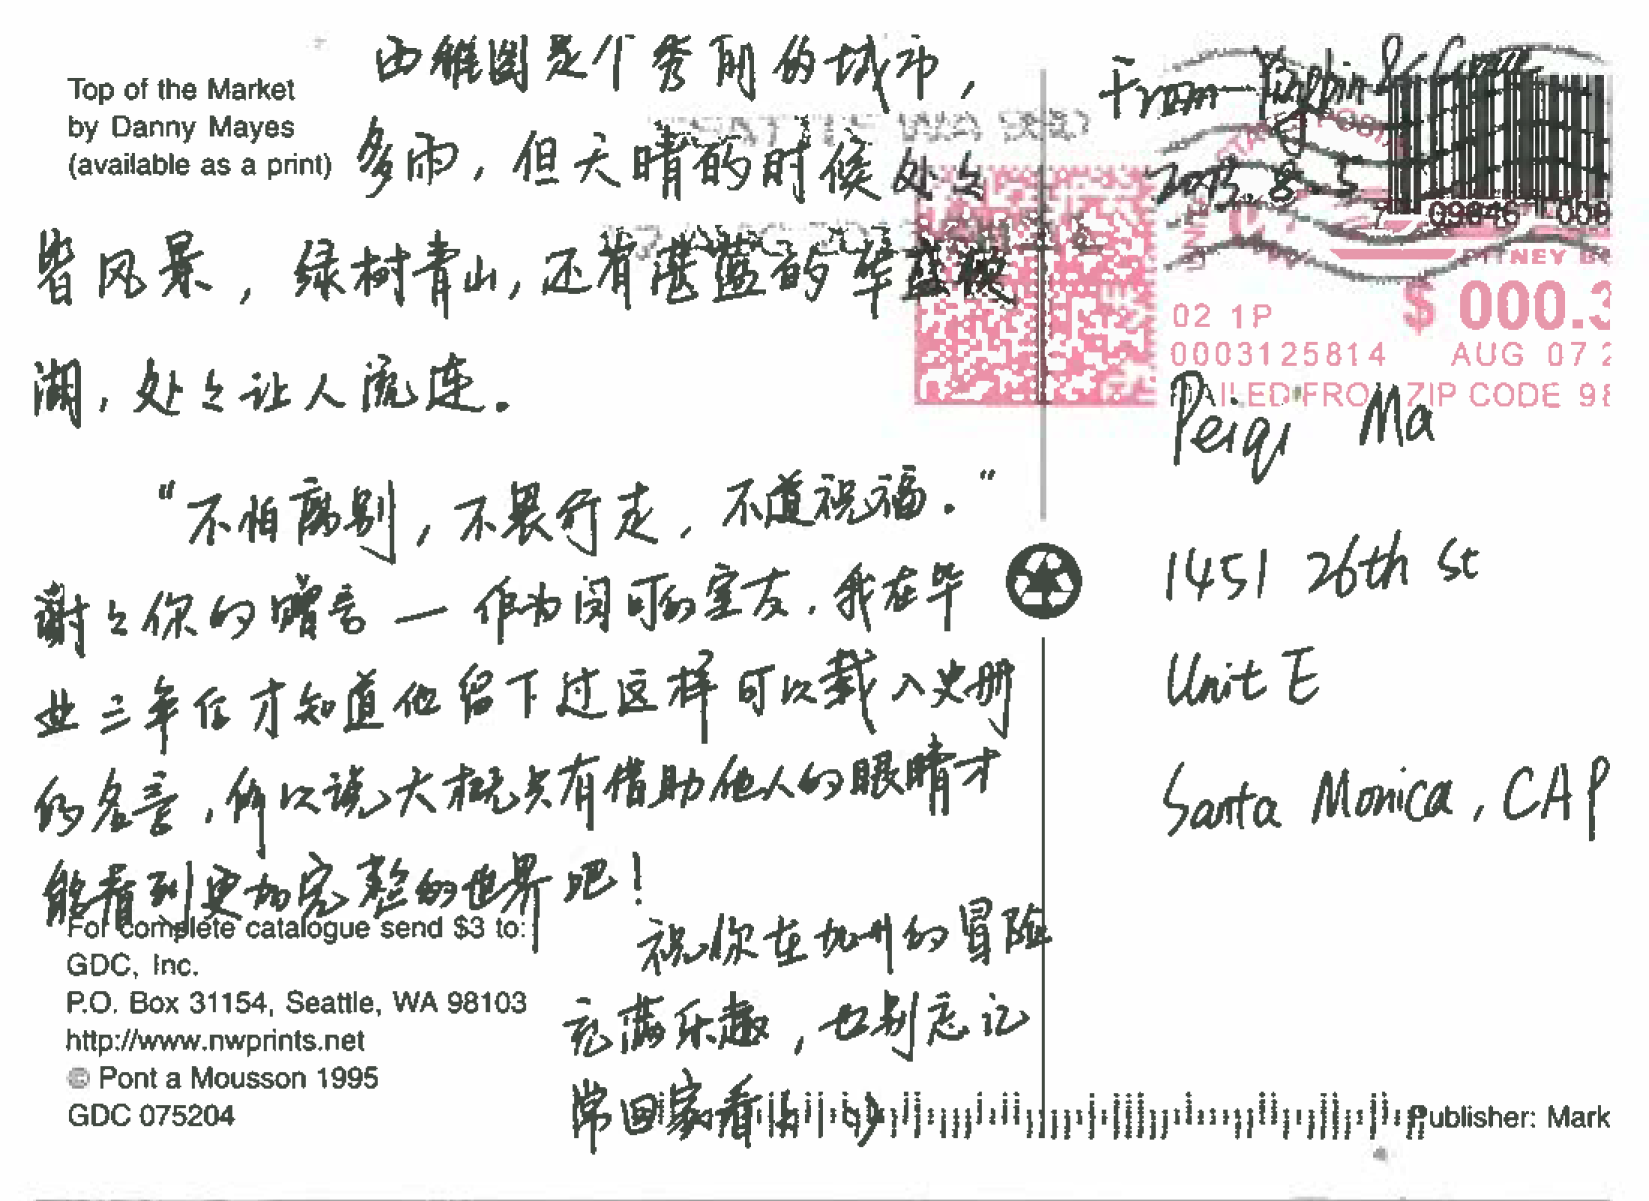 Top of the Market
by Danny Mayes
(available as a print)
西雅图是个秀丽的城市，
多雨，但天晴的时候处处
皆风景，绿树青山，还有湛蓝的华盛顿
湖，处处让人流连。
“不怕离别，不畏行走，不道祝福。”
谢谢你的赠言一作为闵可的室友，我在毕
业三年后才知道他留下过这样可以载入史册
的名言，所以说大概只有借助他人的眼睛才
能看到更加完整的世界吧！
祝你在加州的冒险
充满乐趣，也别忘记
常回家看看
For complete catalogue send $3 to:
GDC, Inc.
P.O. Box 31154, Seattle, WA 98103
http://www.nwprints.net
© Pont a Mousson 1995
GDC 075204
From
2013.8.5
7 09846 008
PITNEY B
02 1P
$ 000.3
0003125814
AUG 07 2
MAILED FROM ZIP CODE 98
Peiqi Ma
1451 26th St
Unit E
Santa Monica, CA
Publisher: Mark